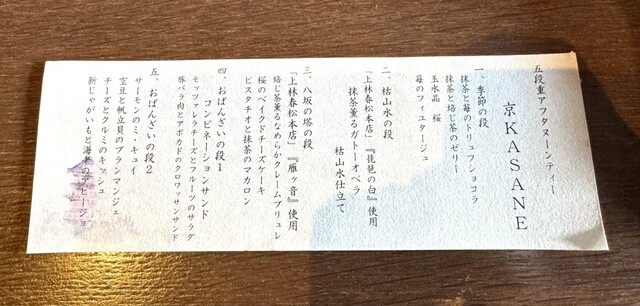 五段重アフタヌーンティー
京KASANE
一、季節の段
抹茶と苺のトリュフショコラ
抹茶と焙じ茶のゼリー
玉水晶 桜
苺のフィユタージュ
二、枯山水の段
「上林春松本店」『琵琶の白』使用
抹茶薫るガトーオペラ
枯山水仕立て
三、八坂の塔の段
「上林春松本店」『雁ヶ音』使用
焙じ茶薫るなめらかクレームブリュレ
桜のベイクドチーズケーキ
ピスタチオと抹茶のマカロン
四、おばんざいの段1
コンビネーションサンド
モッツァレラチーズとフルーツのサラダ
豚バラ肉とアボカドのクロワッサンサンド
五、おばんざいの段2
サーモンのミ・キュイ
空豆と帆立貝のブランマンジェ
チーズとクルミのキッシュ
新じゃがいもと海老の